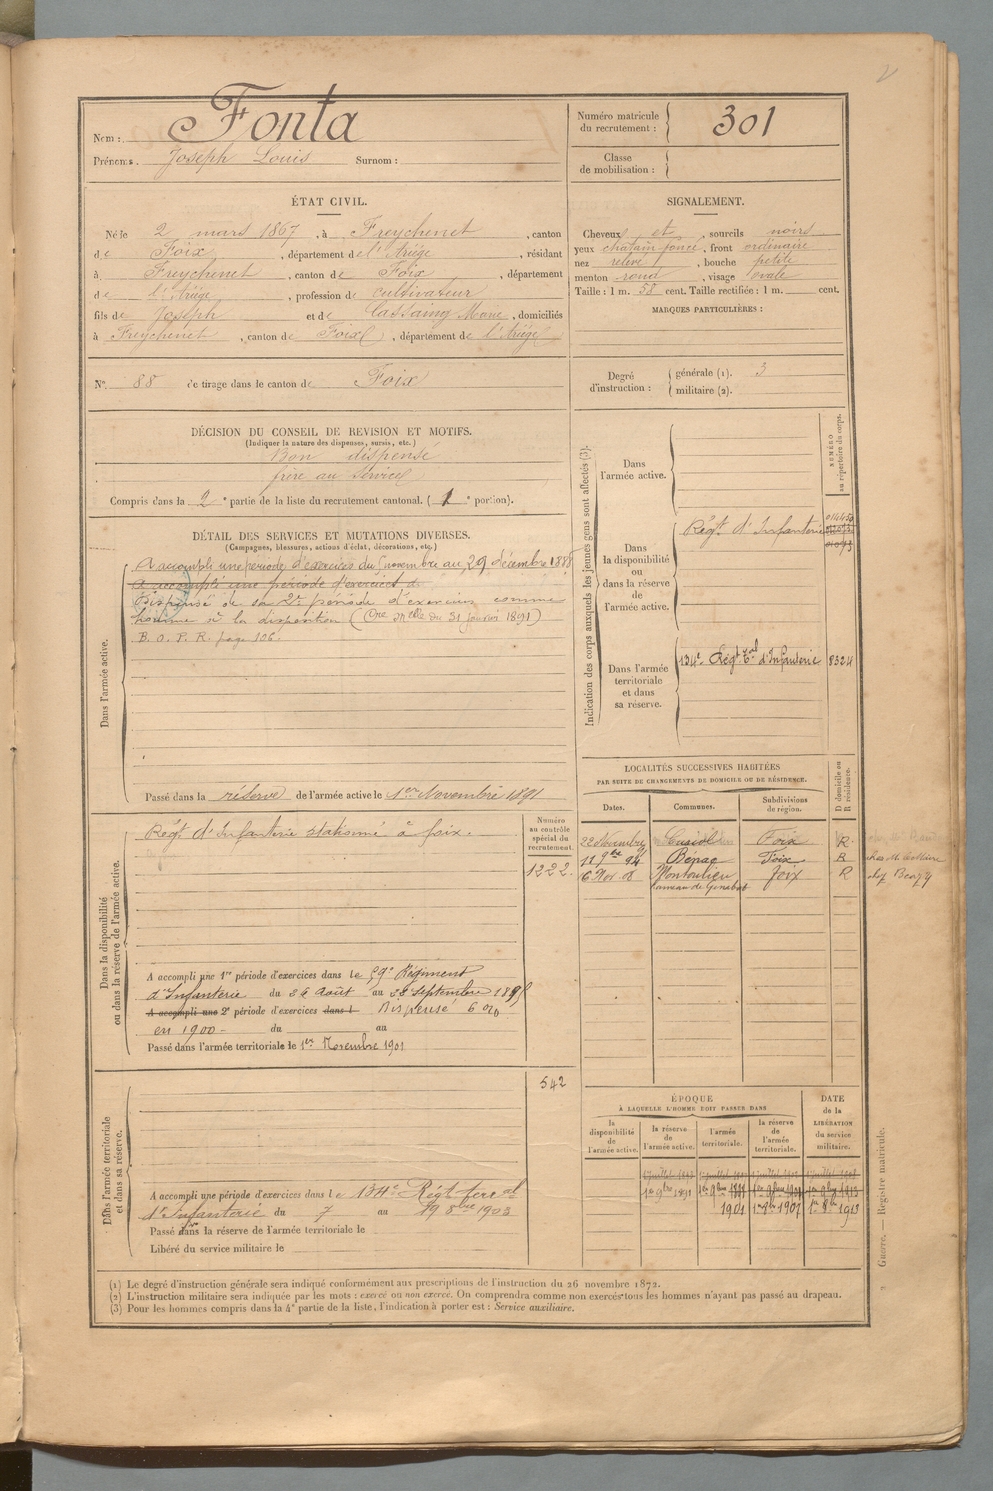 2
Nom : Fonta
Prénoms : Joseph Louis Surnom :
Numéro matricule du recrutement : 301
Classe de mobilisation :
ÉTAT CIVIL.
Né le 2 mars 1867, à Freychenet, canton
de Foix, département de l'Ariège, résidant
à Freychenet, canton de Foix, département
de l'Ariège, profession de cultivateur
fils de Joseph et de Cassaing Marie, domiciliés
à Freychenet, canton de Foix, département de l'Ariège
N° 88 de tirage dans le canton de Foix
SIGNALEMENT.
Cheveux et, sourcils noirs
yeux chatain foncé, front ordinaire
nez relevé, bouche petite
menton rond, visage ovale
Taille : 1 m. 58 cent. Taille rectifiée : 1 m. cent.
MARQUES PARTICULIÈRES :
Degré d'instruction : générale (1). 3
militaire (2).
DÉCISION DU CONSEIL DE REVISION ET MOTIFS.
(Indiquer la nature des dispenses, sursis, etc.)
Bon dispensé
frère au service
Compris dans la 2e partie de la liste du recrutement cantonal. (1e portion).
DÉTAIL DES SERVICES ET MUTATIONS DIVERSES.
(Campagnes, blessures, actions d'éclat, décorations, etc.)
Dans l'armée active.
A accompli une période d'exercices du novembre au 29 décembre 1888
A accompli une période d'exercices d
Dispensé de sa 2e période d'exercices comme
homme à la disposition (Cre Melle du 31 janvier 1891)
B. O. P. R. page 106.
Passé dans la réserve de l'armée active le 1er Novembre 1891
Indication des corps auxquels les jeunes gens sont affectés (3).
NUMÉRO au répertoire du corps.
Dans l'armée active.
Dans la disponibilité ou dans la réserve de l'armée active.
Régt d'Infanterie
Dans l'armée territoriale et dans sa réserve.
134e Régt Tal d'Infanterie 8324
LOCALITÉS SUCCESSIVES HABITÉES
PAR SUITE DE CHANGEMENTS DE DOMICILE OU DE RÉSIDENCE.
Dates. Communes. Subdivisions de région. D domicile ou R résidence.
22 Novembre Foix R
11 9bre 94 Bénac Foix R
6 Nov Montoulieu Foix R
hameau de Ginabat
Dans la disponibilité ou dans la réserve de l'armée active.
Numéro au contrôle spécial du recrutement.
Régt d'Infanterie stationné à foix.
1222
A accompli une 1re période d'exercices dans le 59e Régiment
d'Infanterie du 26 Août au 22 Septembre 189
A accompli une 2e période d'exercices dans l Dispensé
en 1900 du au
Passé dans l'armée territoriale le 1er Novembre 1901
Dans l'armée territoriale et dans sa réserve.
542
A accompli une période d'exercices dans le 134e Régt territal
d'Infanterie du 7 au 19 8bre 1903
Passé dans la réserve de l'armée territoriale le
Libéré du service militaire le
ÉPOQUE
À LAQUELLE L'HOMME DOIT PASSER DANS
la disponibilité de l'armée active.
la réserve de l'armée active.
l'armée territoriale.
la réserve de l'armée territoriale.
DATE de la LIBÉRATION du service militaire.
1er 9bre 1891
1901 1er 8bre 1907 1er 8b 1913
(1) Le degré d'instruction générale sera indiqué conformément aux prescriptions de l'instruction du 26 novembre 1872.
(2) L'instruction militaire sera indiquée par les mots : exercé ou non exercé. On comprendra comme non exercés tous les hommes n'ayant pas passé au drapeau.
(3) Pour les hommes compris dans la 4e partie de la liste, l'indication à porter est : Service auxiliaire.
Guerre. — Registre matricule.